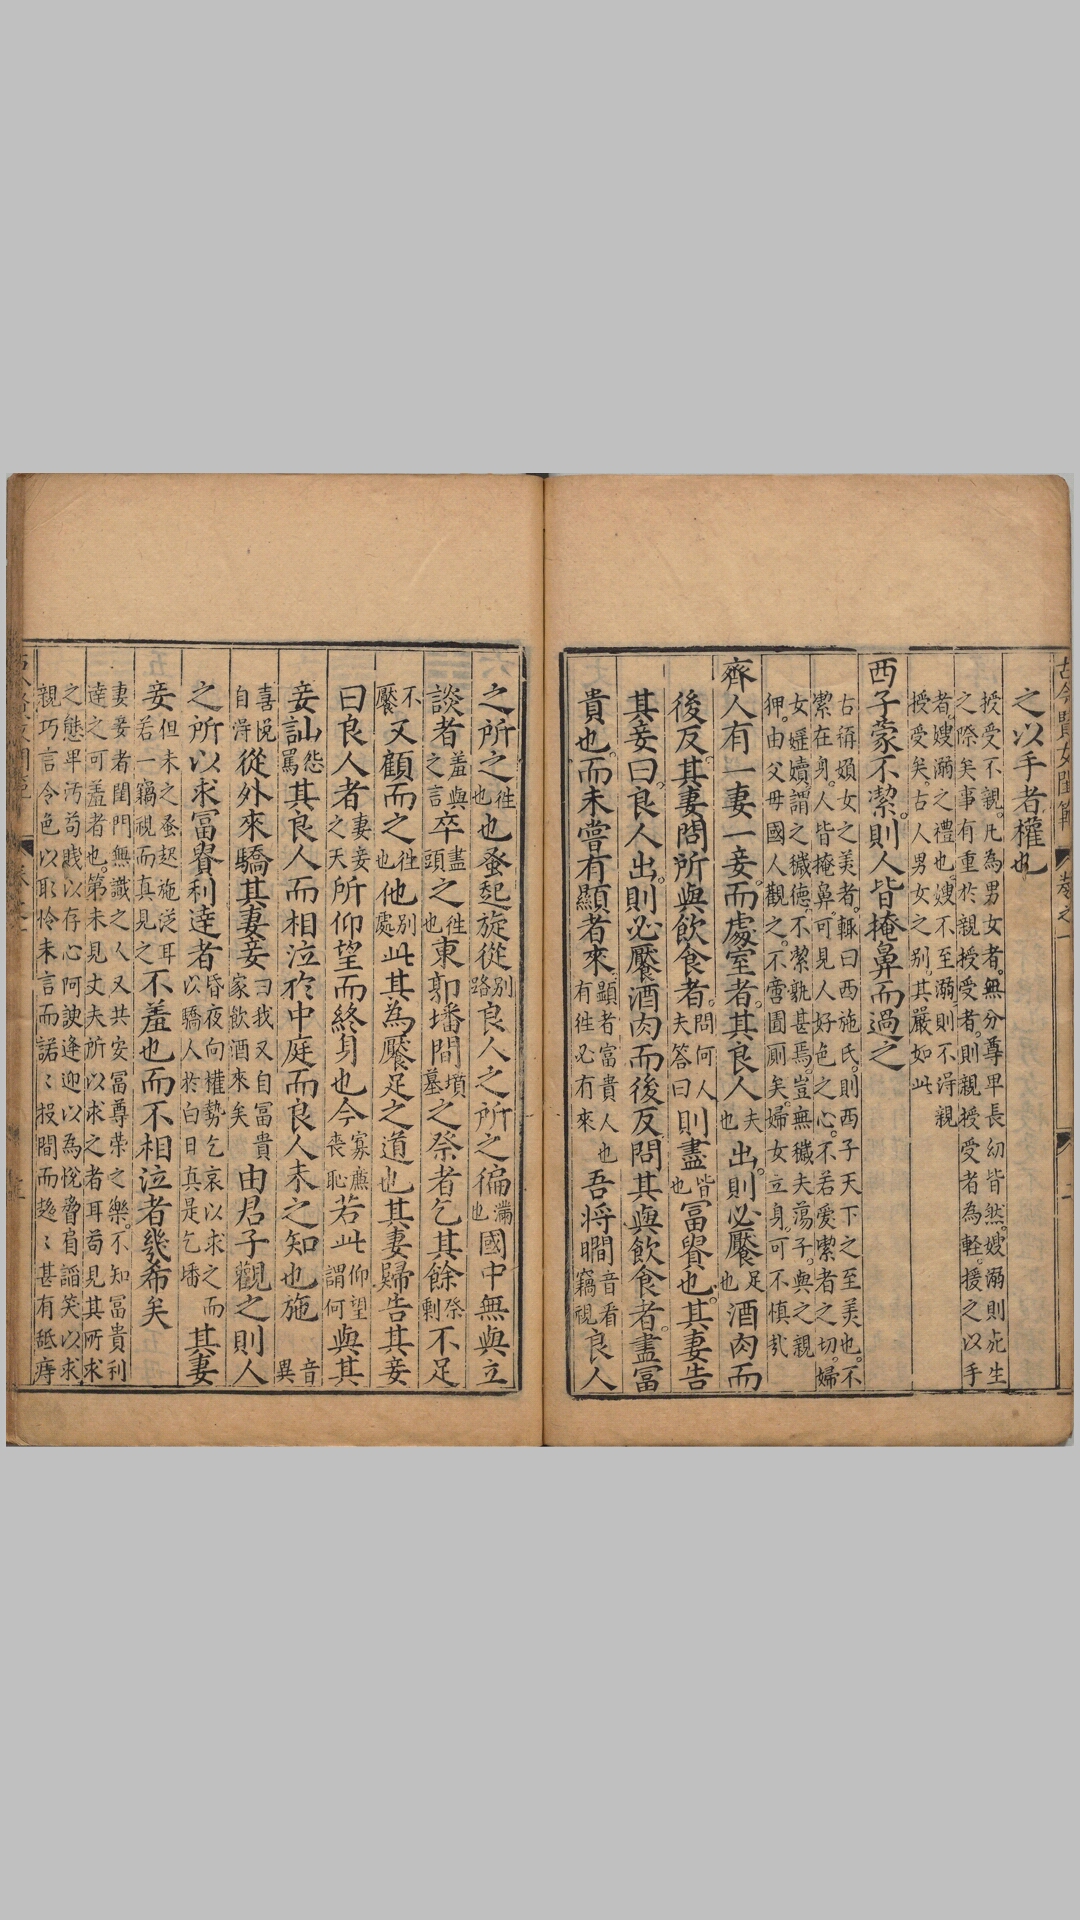 古今賢女閨範 卷之一
之以手者權也
授受不親。凡為男女者。無分尊卑長幼皆然。嫂溺則死生
之際矣。事有重於親授受者。則親授受者為輕。援之以手
者。嫂溺之禮也。嫂不至溺。則不淂親
授受矣。古人男女之別。其嚴如此
西子蒙不潔。則人皆掩鼻而過之
古稱媍女之美者。輒曰西施氏。則西子天下之至美也。不
潔在身。人皆掩鼻。可見人好色之心。不若愛潔者之切。婦
女婬嬻謂之穢德。不潔孰甚焉。豈無穢夫蕩子。與之親
狎。由父母國人觀之。不啻圊厠矣。婦女立身。可不慎㢤
齊人有一妻一妾。而處室者。其良人夫也出。則必饜足也酒肉而
後反。其妻問所與飲食者。問何人夫答曰則盡皆也冨貴也。其妻告
其妾曰。良人出。則必饜酒肉而後反問其與飲食者。盡冨
貴也。而未嘗有顯者來。顯者富貴人也有徃必有來吾將瞯音看竊視良人
之所之徃也也蚤起施從別路良人之所之徧滿也國中無與立
談者羞與之言卒盡頭之徃也東郭墦間墳墓之祭者乞其餘祭剩不足
不饜又顧而之徃也他別處此其為饜足之道也其妻歸告其妾
曰良人者妻妾之天所仰望而終身也今寡㢘喪恥若此仰望謂何與其
妾訕怨罵其良人而相泣於中庭而良人未之知也施音異
喜悅自淂從外來驕其妻妾曰我又自冨貴家飲酒來矣由君子觀之則人
之所以求冨貴利達者昏夜向權勢乞哀以求之而以驕人於白日真是乞墦其妻
妾但未之蚤起施從耳若一竊視而真見之不羞也而不相泣者幾希矣
妻妾者閨門無識之人又共安冨尊荣之樂。不知冨貴利
達之可羞者也。第未見丈夫所以求之者耳苟見其所求
之態卑汚苟賤以存心阿諛逄迎以為悅脅肩謟笑以求
親巧言令色以取怜未言而諾〻投間而趍〻甚有舐痔